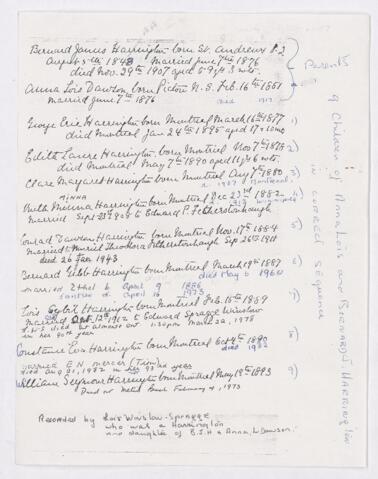 Bernard James Harrington born St. Andrews P.Q
August 5th 1848 Married June 7th 1876
died Nov. 29th 1907 aged 59 yrs 3 mts.
Anna Lois Dawson born Pictou N.S. Feb. 16th 1851
married June 7th 1876 died 1917
Parents
George Eric Harrington born Montreal March 16th 1877 1)
died Montreal Jan 24th 1895 aged 17 10 mo
Edith Laure Harrington born Montreal Nov 7th 1878 2)
died Montreal May 7th 1890 aged 11 yrs 6 mts.
Clare Margaret Harrington born Montreal Aug 7th 1880 3)
d. 1907 (Montreal)
MINNA
Ruth Minnna Harrington born Montreal Dec 23rd 1882 4)
1913 Winnipeg
Married Sept 1908 to Edward P. Fetherstonhaugh
Conrad Dawson Harrington born Montreal Nov. 17th 1884 5)
Married to Muriel Theodora Fetherstonhaugh Sep 26th 1911
died 26 Jan 1943
Bernard Gibb Harrington born Montreal March 19th 1887 6)
died May 6 1960
married Ethel b April 9 1886
April 16 1973
Lois Sybil Harrington born Montreal Feb. 15th 1889 7)
Married Oct 12th 1912 to Edward Spragge Winslow
L.S.H.S died at almost 1:30pm March 22, 1978
in her 90th year
Constance Eva Harrington born Montreal Oct 4th 1890 8)
married E.N. Mercer (Trim)
died Aug 21, 1982 in her 92nd year
William Seymour Harrington born Montreal May 19th 1893 9)
Died at Metis Beach February 4, 1973
Recorded by Lois Winslow-Spragge
who was a Harrington
and daughter of B.J.H & Anna L Dawson.
9 Children of Anna Lois and Bernard J. Harrington
in correct sequence